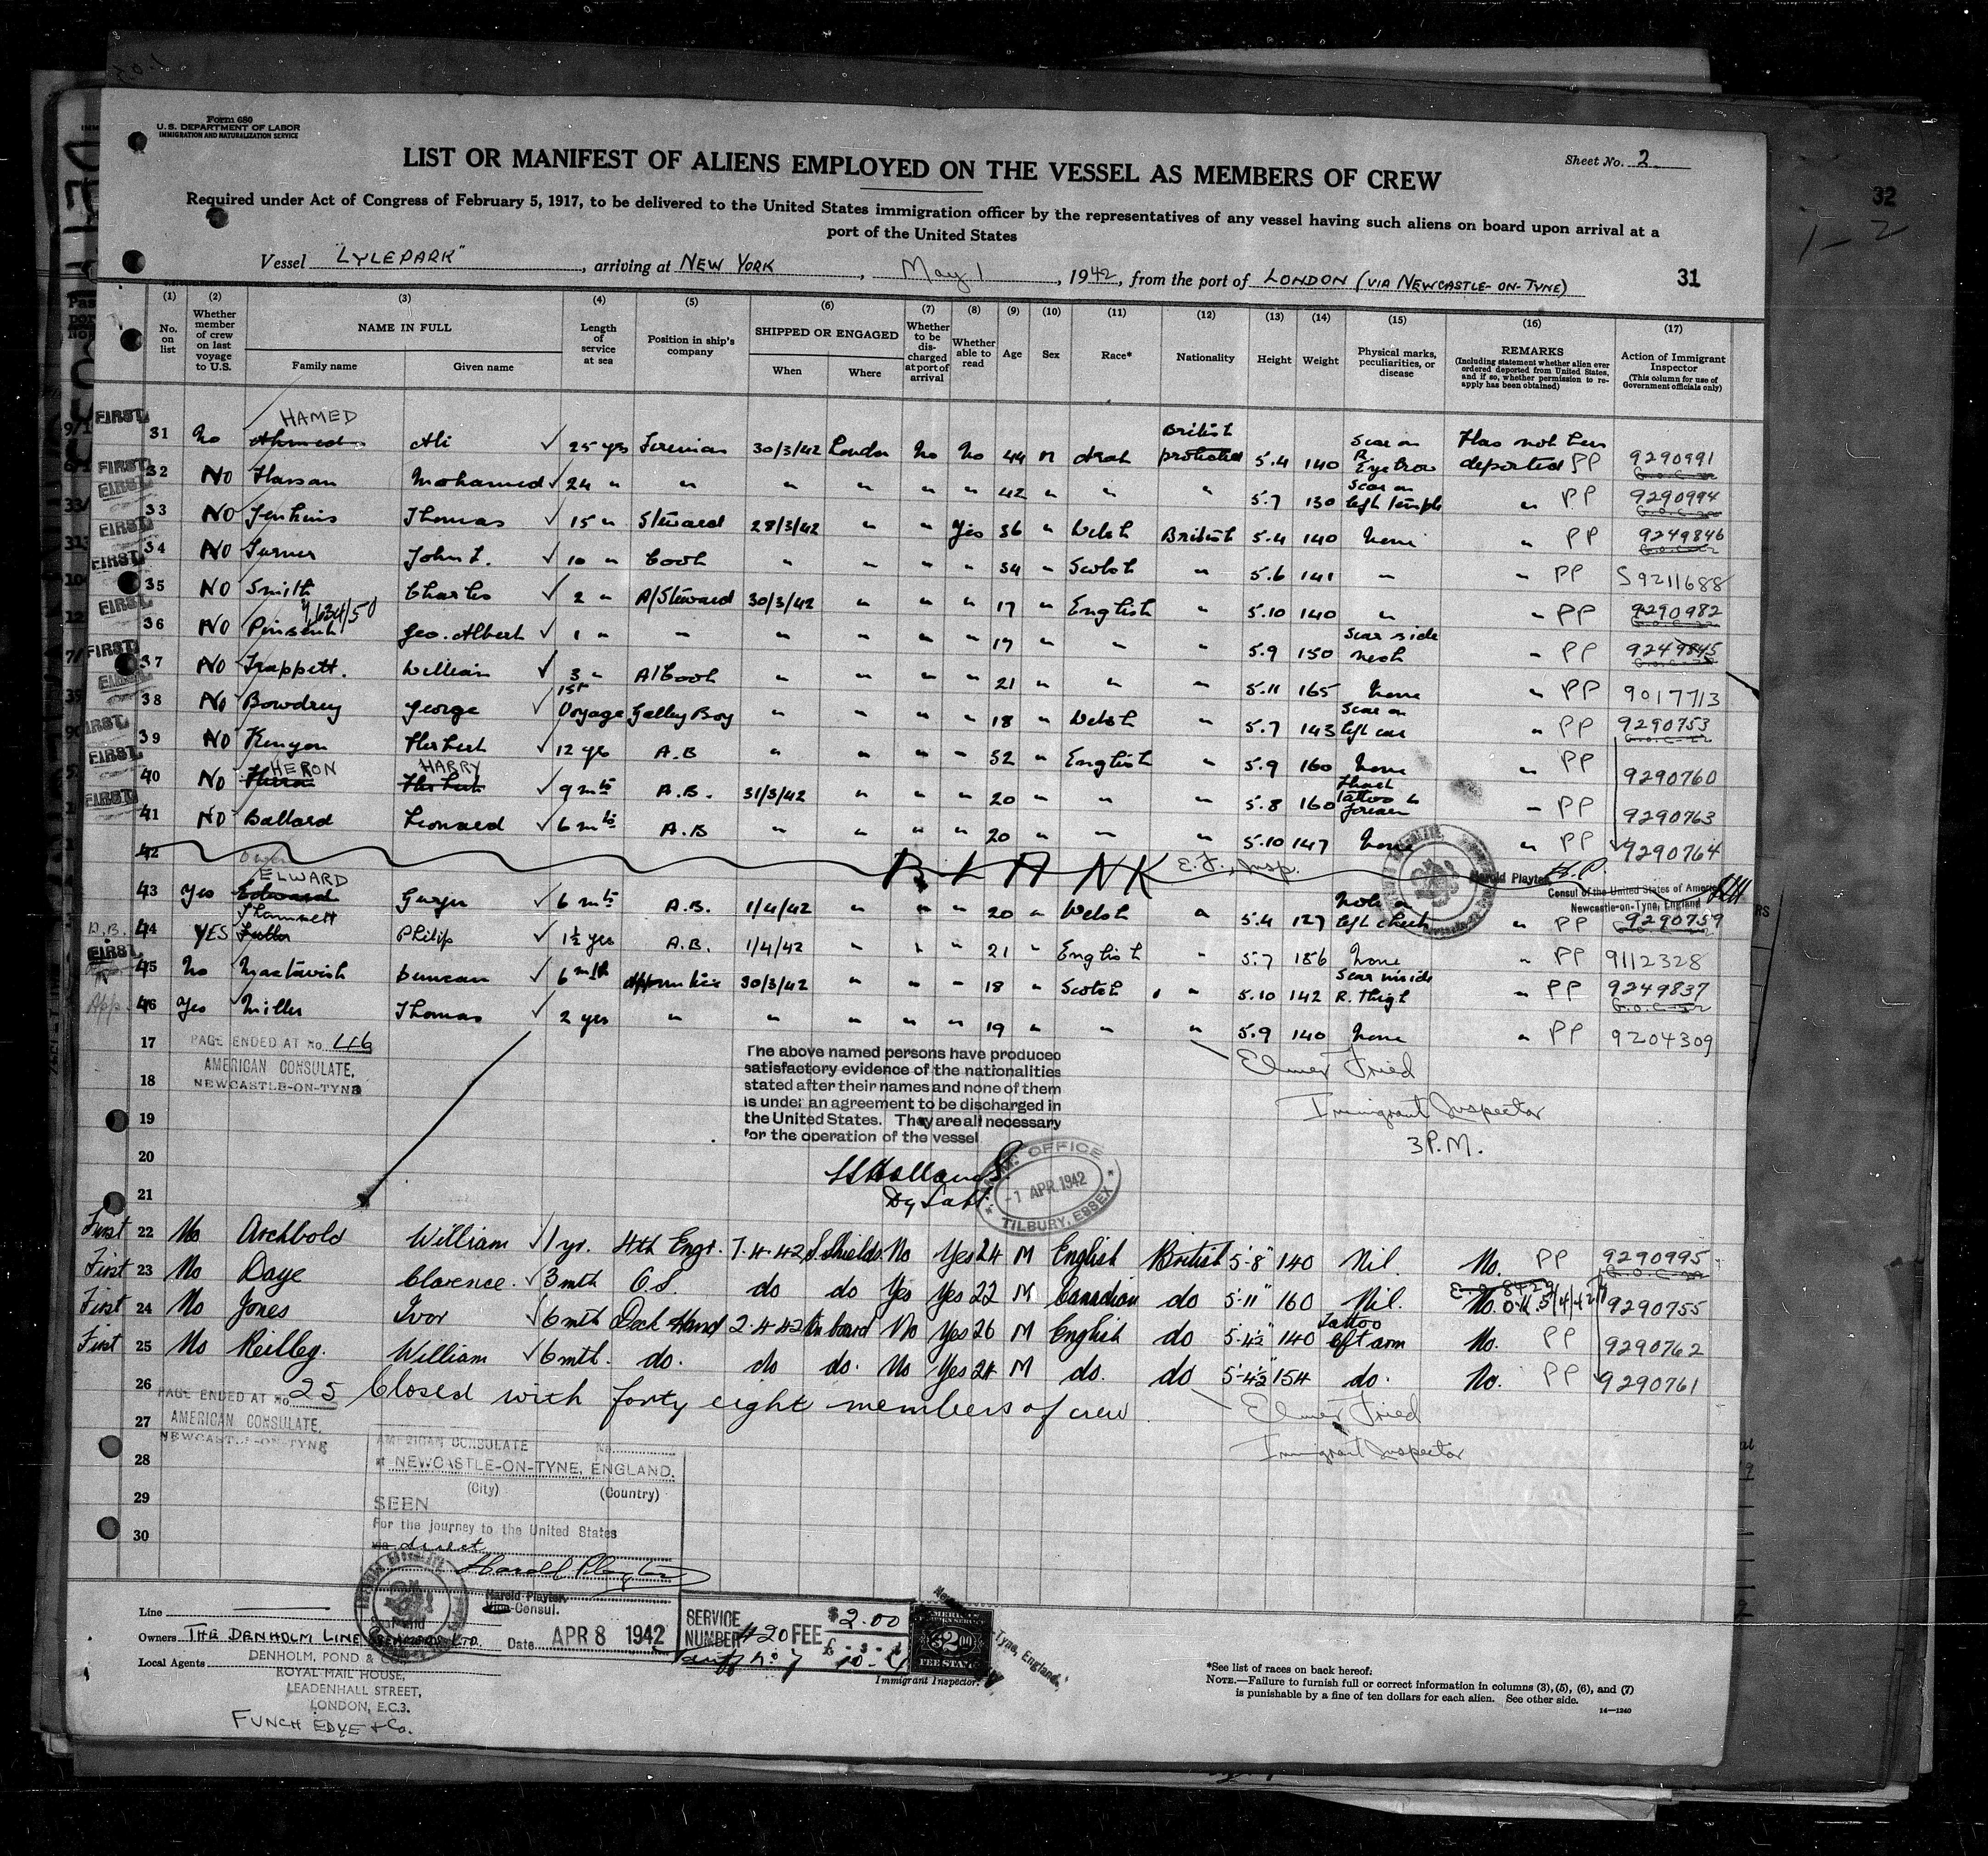 Form 680
U.S. DEPARTMENT OF LABOR
IMMIGRATION AND NATURALIZATION SERVICE
Sheet No. 2
LIST OR MANIFEST OF ALIENS EMPLOYED ON THE VESSEL AS MEMBERS OF CREW
Required under Act of Congress of February 5, 1917, to be delivered to the United States immigration officer by the representatives of any vessel having such aliens on board upon arrival at a
port of the United States
32
1-2
Vessel "LYLEPARK", arriving at NEW YORK, May 1, 1942, from the port of LONDON (VIA NEWCASTLE-ON-TYNE)
31
(1) (2) (3) (4) (5) (6) (7) (8) (9) (10) (11) (12) (13) (14) (15) (16) (17)
No. on list
Whether member of crew on last voyage to U.S.
NAME IN FULL
Family name Given name
Length of service at sea
Position in ship's company
SHIPPED OR ENGAGED
When Where
Whether to be discharged at port of arrival
Whether able to read
Age Sex Race* Nationality Height Weight
Physical marks, peculiarities, or disease
REMARKS
(Including statement whether alien ever ordered deported from United States, and if so, whether permission to reapply has been obtained)
Action of Immigrant Inspector
(This column for use of Government officials only)
FIRST 31 No Ahmed HAMED Ali 25 yrs Fireman 30/3/42 London No No 44 M Arab British protected 5.4 140 Scar on R. Eyebrow Has not been deported PP 9290991
FIRST 32 NO Hassan Mohamed 24 " " " " " " 42 " " " 5.7 130 Scar on left temple " PP 9290994
FIRST 33 NO Jenkins Thomas 15 " Steward 28/3/42 " " Yes 36 " Welsh British 5.4 140 None " PP 9249846
FIRST 34 NO Turner John L. 10 " Cook " " " " 34 " Scotch " 5.6 141 " " PP S9211688
FIRST 35 NO Smith Charles 2 " A/Steward 30/3/42 " " " 17 " English " 5.10 140 " " PP 9290982
FIRST 36 NO Pinsent Geo. Albert 1 " " " " " " 17 " " " 5.9 150 Scar side neck " PP 9249845
FIRST 37 NO Trappett. William 3 " A/Cook " " " " 21 " " " 5.11 165 None " PP 9017713
FIRST 38 NO Bowdrey George 1st Voyage Galley Boy " " " " 18 " Welsh " 5.7 143 Scar on left ear " PP 9290753
FIRST 39 NO Kenyon Herbert 12 yrs A.B " " " " 52 " English " 5.9 160 None " PP 9290760
FIRST 40 NO HERON HARRY Herbert 9 mts A.B. 31/3/42 " " " 20 " " " 5.8 160 Tattoo forearm " PP 9290763
FIRST 41 NO Ballard Leonard 6 mts A.B " " " " 20 " " " 5.10 147 None " PP 9290764
42 BLANK E.F., Insp.
Harold Playter
Consul of the United States of America
Newcastle-on-Tyne, England
43 Yes Edward ELWARD 6 mts A.B. 1/4/42 " " " 20 " Welsh " 5.4 127 left cheek " PP 9290759
44 YES Philip 1½ yrs A.B. 1/4/42 " " " 21 " English " 5.7 156 None " PP 9112328
FIRST 45 No Mactavish Duncan 6 mth Apprentice 30/3/42 " " " 18 " Scotch " 5.10 142 Scar inside R. Thigh " PP 9249837
App. 46 Yes Miller Thomas 2 yrs " " " " " 19 " " " 5.9 140 None " PP 9204309
17 PAGE ENDED AT No. 46
AMERICAN CONSULATE,
18 NEWCASTLE-ON-TYNE
The above named persons have produced
satisfactory evidence of the nationalities
stated after their names and none of them
is under an agreement to be discharged in
the United States. They are all necessary
for the operation of the vessel
Elmer Fried
Immigrant Inspector
3 P.M.
19
20
21
OFFICE
-1 APR 1942
TILBURY, ESSEX
First 22 No Archbold William 1 yr. 4th Engr. 7.4.42 S.Shields No Yes 24 M English British 5'8" 140 Nil. No. PP 9290995
First 23 No Daye Clarence. 3 mth O.S. do do Yes Yes 22 M Canadian do 5'11" 160 Nil. No. 9290755
First 24 No Jones Ivor 6 mth Deck Hand 2.4.42 On board No Yes 26 M English do 5'4½" 140 Tattoo left arm No. PP 9290762
First 25 No Reilley. William 6 mth. do. do do. No Yes 24 M do. do 5'4½" 154 do. No. PP 9290761
26 PAGE ENDED AT No. 25 Closed with forty eight members of crew
27 AMERICAN CONSULATE,
NEWCASTLE-ON-TYNE
Elmer Fried
Immigrant Inspector
28
29
30
AMERICAN CONSULATE No.
at NEWCASTLE-ON-TYNE, ENGLAND.
(City) (Country)
SEEN
For the journey to the United States
via direct
Harold Playter
Harold Playter
Vice-Consul.
Line
Owners THE DENHOLM LINE STEAMERS LTD.
Date APR 8 1942
SERVICE NUMBER #20 FEE $2.00
Tariff No 7
AMERICAN
$2.00
FEE STAMP
Immigrant Inspector.
Local Agents DENHOLM, POND & CO.,
ROYAL MAIL HOUSE,
LEADENHALL STREET,
LONDON, E.C.3.
FUNCH EDYE & Co.
*See list of races on back hereof.
NOTE.—Failure to furnish full or correct information in columns (3), (5), (6), and (7)
is punishable by a fine of ten dollars for each alien. See other side.
14—1240